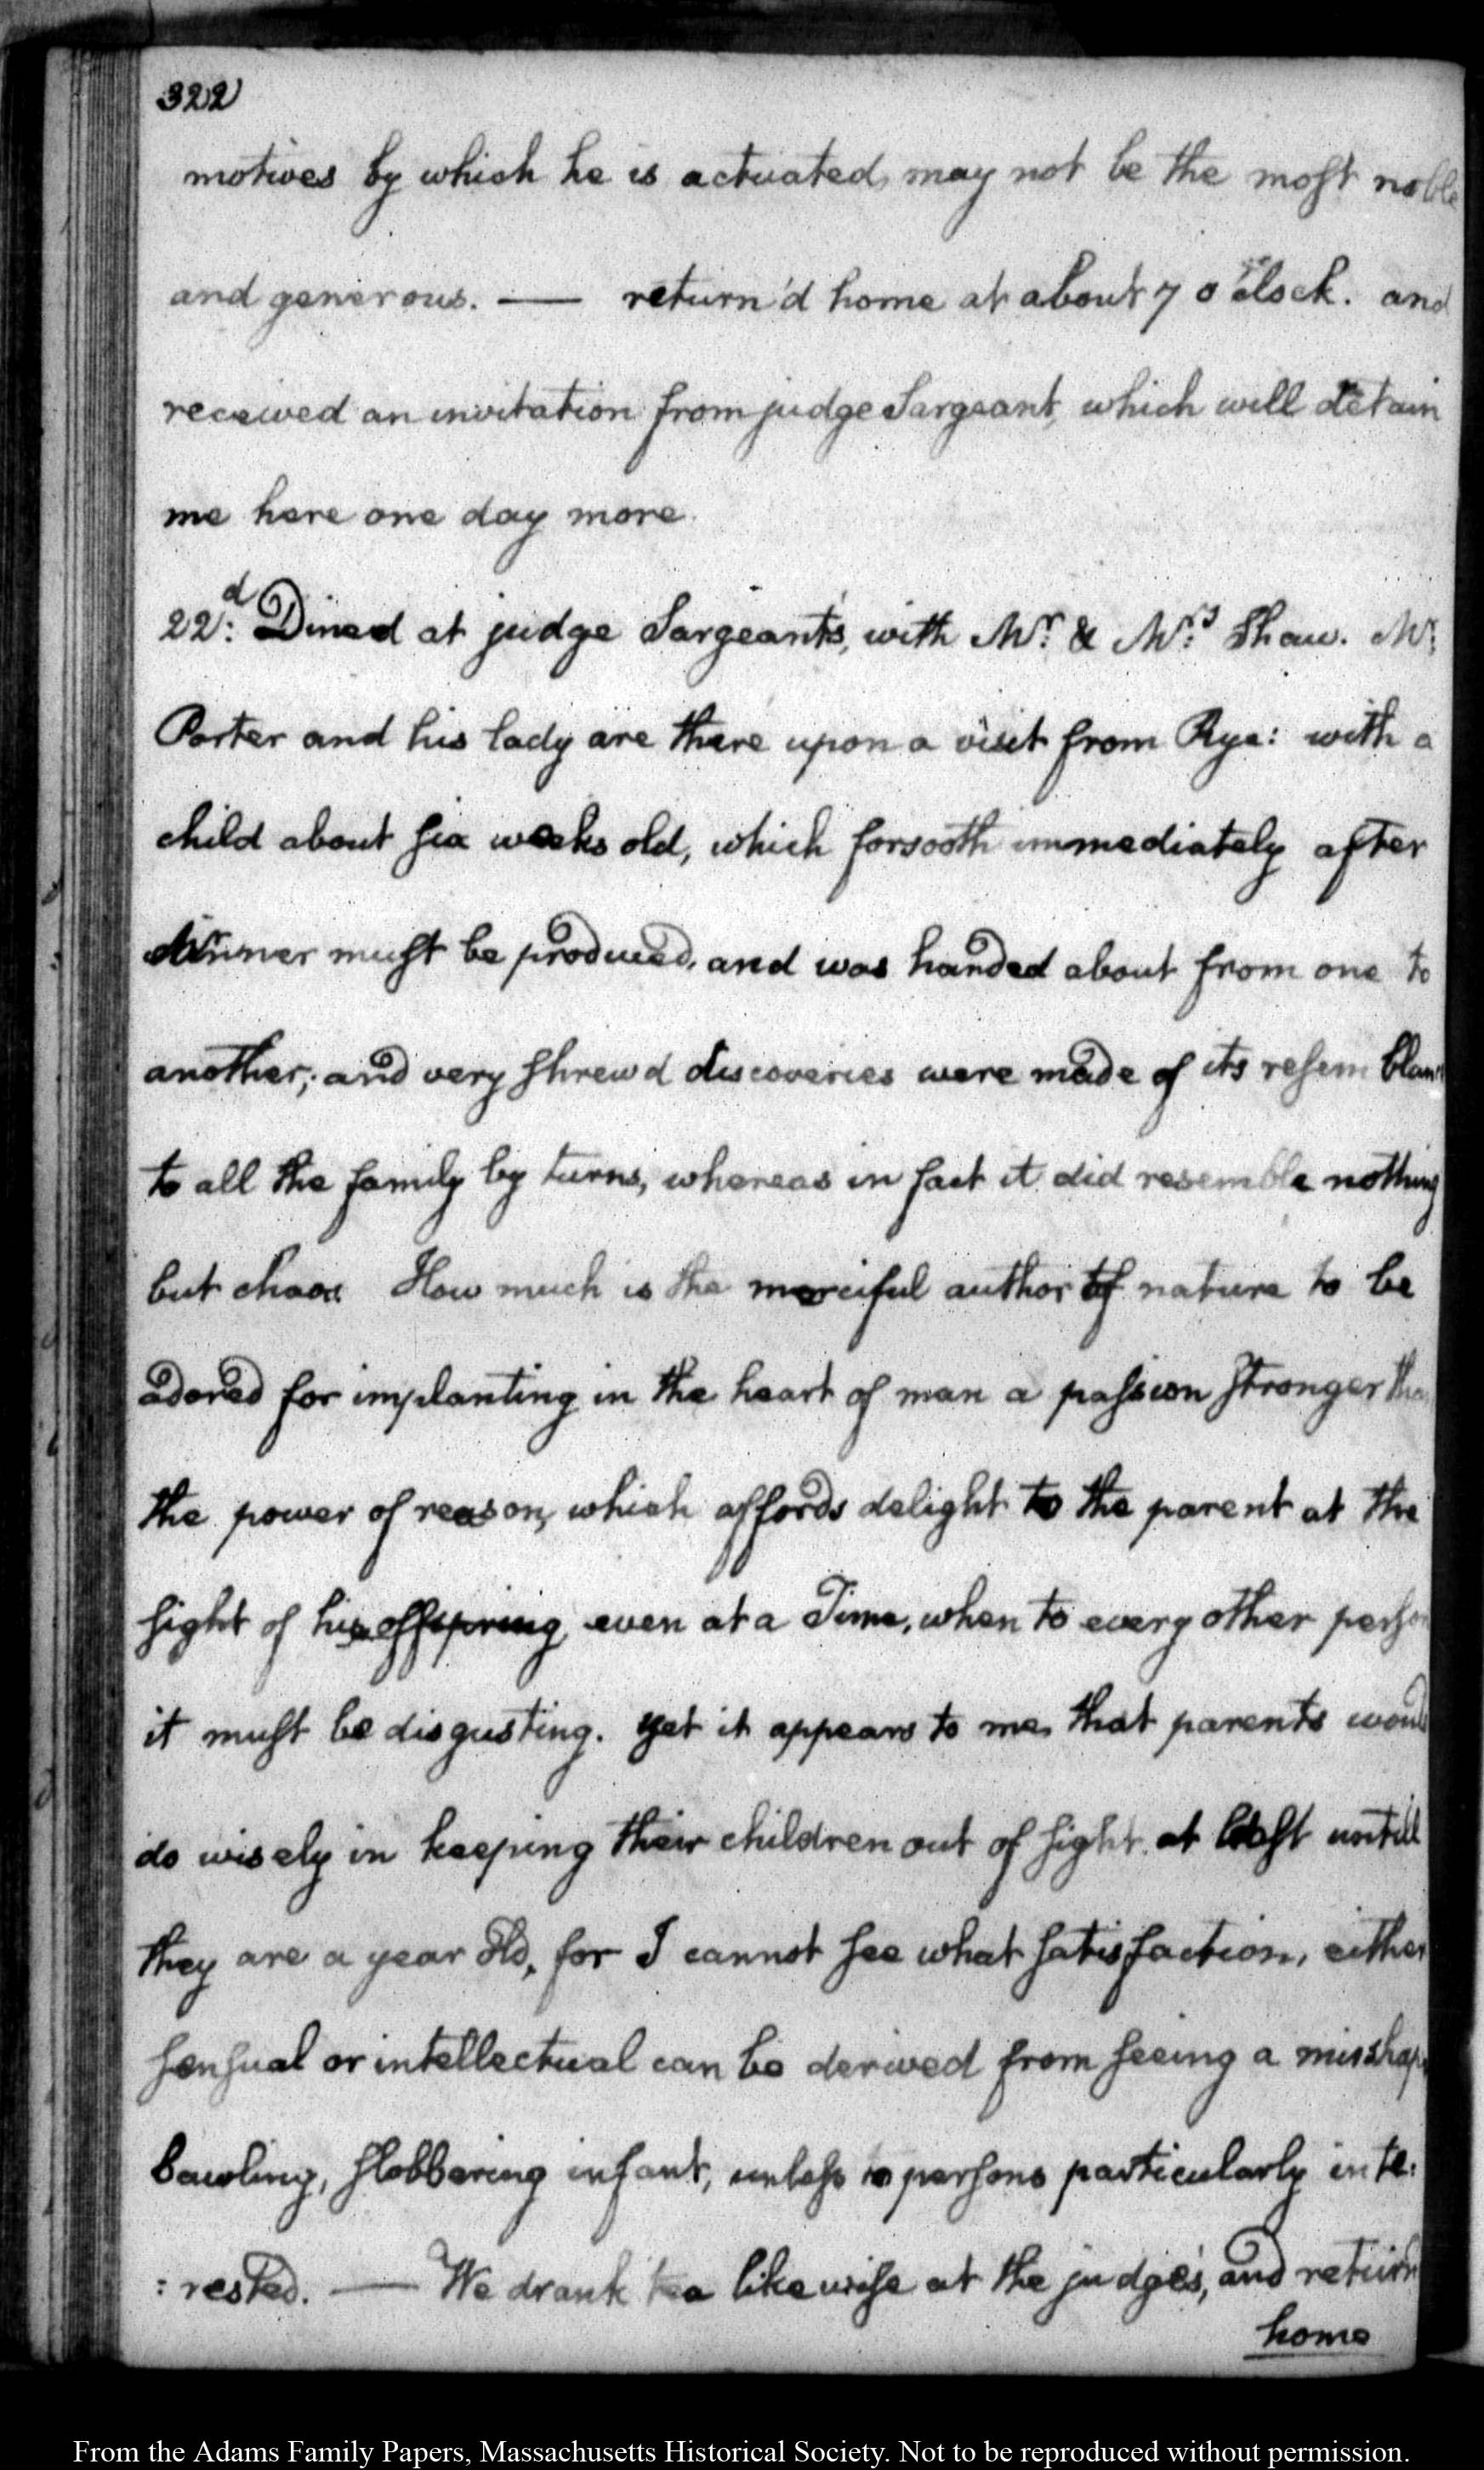 322
motives by which he is actuated, may not be the most noble
and generous. — return'd home at about 7 o'clock. and
received an invitation from judge Sargeant, which will detain
me here one day more.
22:d Dined at judge Sargeant's, with Mr. & Mrs. Shaw. Mr.
Porter and his lady are there upon a visit from Rye: with a
child about six weeks old, which forsooth immediately after
dinner must be produced, and was handed about from one to
another; and very shrewd discoveries were made of its resemblan
to all the family by turns, whereas in fact it did resemble nothing
but chaos. How much is the merciful author of nature to be
adored for implanting in the heart of man a passion stronger tha
the power of reason, which affords delight to the parent at the
sight of his offspring, even at a Time, when to every other person
it must be disgusting. yet it appears to me, that parents would
do wisely in keeping their children out of sight at least untill
they are a year old, for I cannot see what satisfaction, either
sensual or intellectual can be derived from seeing a misshap
bawling, slobbering infant, unless to persons particularly inte:
:rested. — We drank tea likewise at the judge's, and return
home
From the Adams Family Papers, Massachusetts Historical Society. Not to be reproduced without permission.